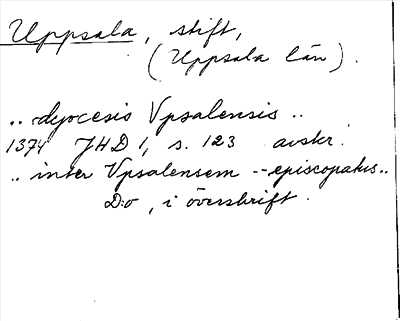 Uppsala, stift,
(Uppsala län).
.. dyocesis Vpsalensis ..
1374 JHD 1, s. 123 avskr.
.. inter Vpsalensem -- episcopatus ..
D:o, i överskrift.